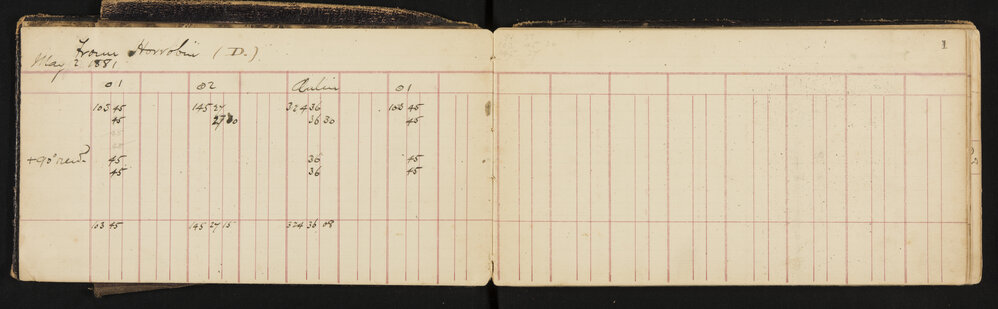 1
From Horrobin (D.)
May 2 1881
01 02 Aulin 01
103 45 145 27 324 36 103 45
45 27 30 36 30 45
+90° 45 36 45
45 36 45
103 45 145 27 15 324 36 08